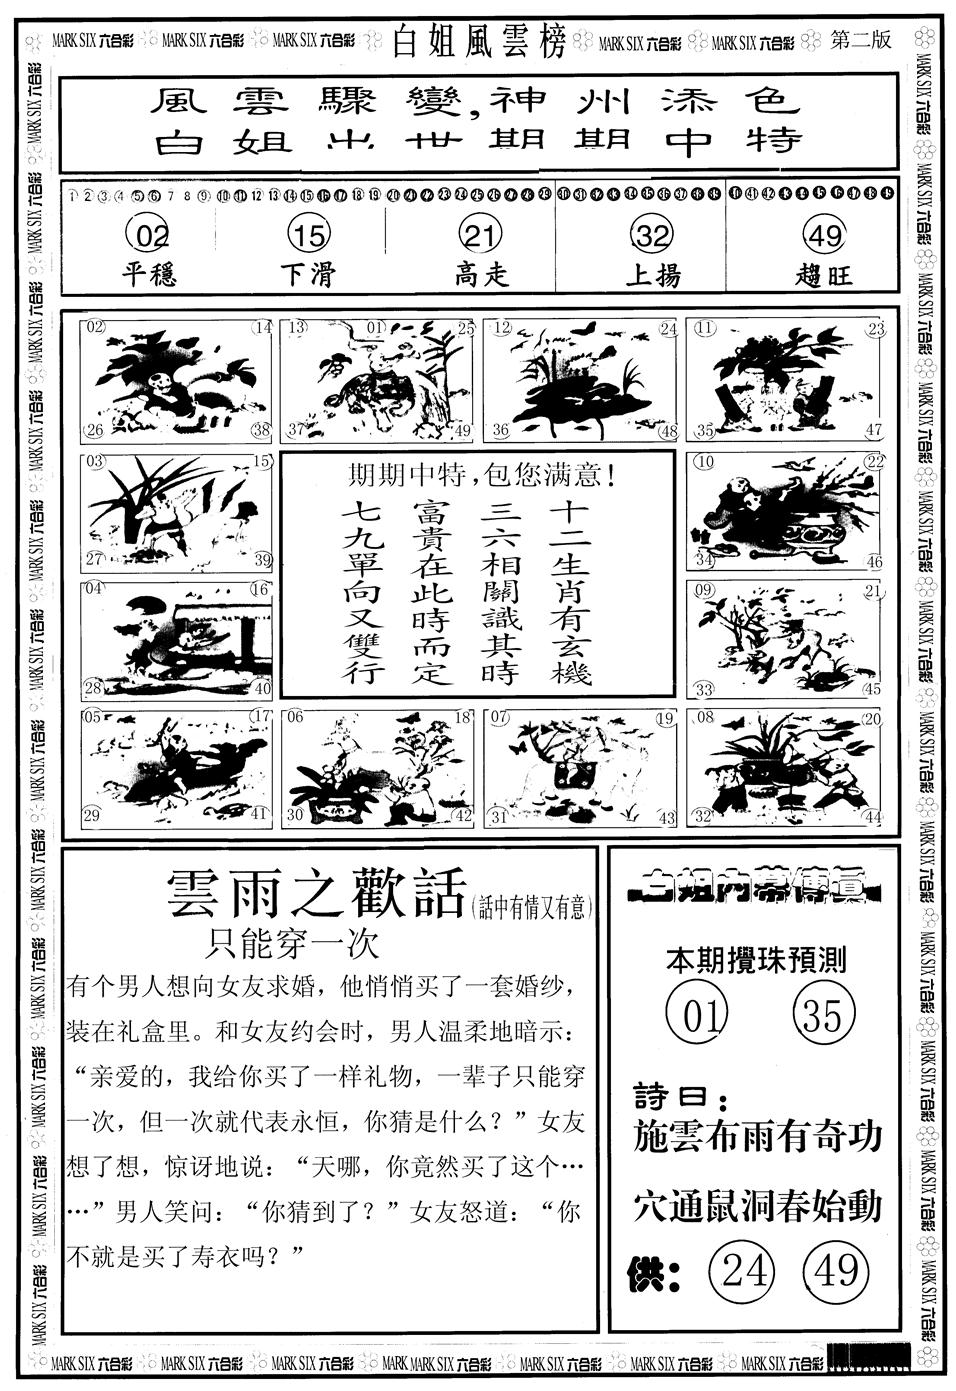 MARK SIX 六合彩 MARK SIX 六合彩 MARK SIX 六合彩 白姐風雲榜 MARK SIX 六合彩 MARK SIX 六合彩 第二版
風雲驟變,神州添色
白姐出世期期中特
1 2 3 4 5 6 7 8 9 10 11 12 13 14 15 16 17 18 19 20 21 22 23 24 25 26 27 28 29 30 31 32 33 34 35 36 37 38 39 40 41 42 43 44 45 46 47 48 49
02 15 21 32 49
平穩 下滑 高走 上揚 趨旺
02 14 13 01 25 12 24 11 23
26 38 37 49 36 48 35 47
03 15
27 39
04 16
28 40
期期中特,包您满意!
十二生肖有玄機
三六相關識其時
富貴在此時而定
七九單向又雙行
10 22
34 46
09 21
33 45
05 17 06 18 07 19 08 20
29 41 30 42 31 43 32 44
雲雨之歡話(話中有情又有意)
只能穿一次
有个男人想向女友求婚，他悄悄买了一套婚纱，
装在礼盒里。和女友约会时，男人温柔地暗示：
“亲爱的，我给你买了一样礼物，一辈子只能穿
一次，但一次就代表永恒，你猜是什么？”女友
想了想，惊讶地说：“天哪，你竟然买了这个…
…”男人笑问：“你猜到了？”女友怒道：“你
不就是买了寿衣吗？”
白姐内幕傳真
本期攪珠預測
01 35
詩曰：
施雲布雨有奇功
穴通鼠洞春始動
供：24 49
MARK SIX 六合彩 MARK SIX 六合彩 MARK SIX 六合彩 MARK MARK SIX 六合彩 MARK SIX 六合彩 MARK SIX 六合彩 MARK SIX 六合彩